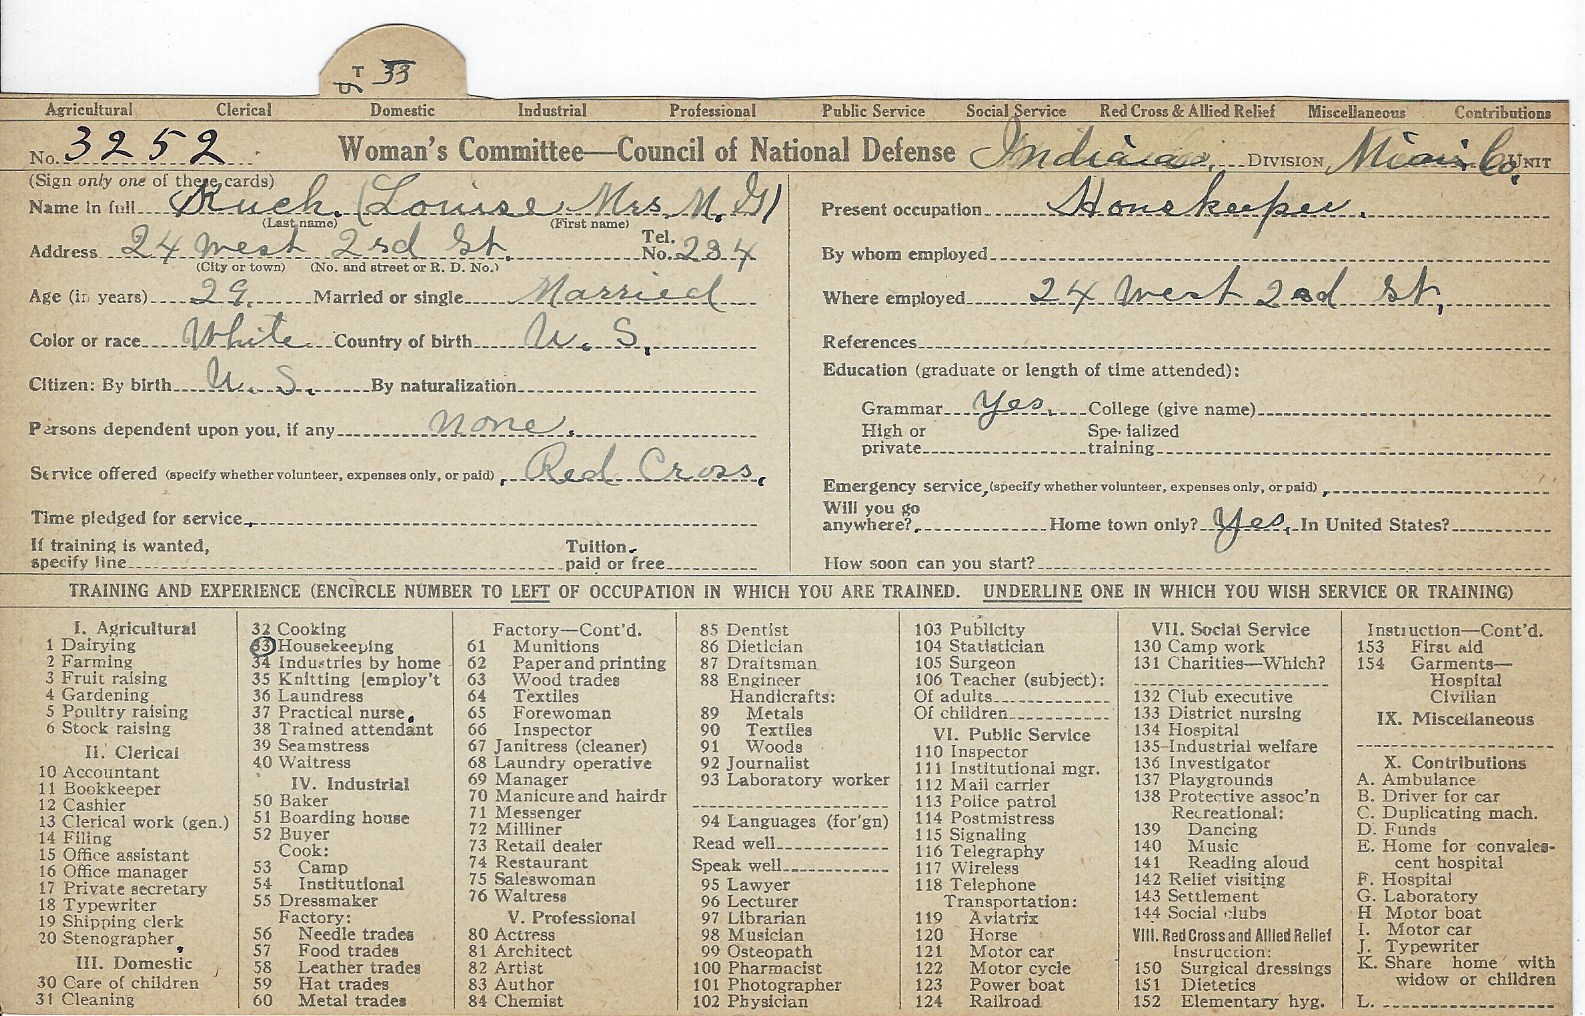 T 33
Agricultural Clerical Domestic Industrial Professional Public Service Social Service Red Cross & Allied Relief Miscellaneous Contributions
No. 3252 Woman's Committee—Council of National Defense Indiana. DIVISION, Miami Co. UNIT
(Sign only one of these cards)
Name in full (Louise Mrs. M. G)
(Last name) (First name)
Address 24 West 2nd St. Tel. No. 234
(City or town) (No. and street or R. D. No.)
Age (in years) 29. Married or single Married
Color or race White Country of birth U. S.
Citizen: By birth U. S. By naturalization
Persons dependent upon you, if any none.
Service offered (specify whether volunteer, expenses only, or paid), Red Cross.
Time pledged for service,
If training is wanted,
specify line
Tuition
paid or free
Present occupation Housekeeper.
By whom employed
Where employed 24 West 2nd St,
References
Education (graduate or length of time attended):
Grammar Yes. College (give name)
High or
private
Specialized
training
Emergency service, (specify whether volunteer, expenses only, or paid),
Will you go
anywhere? Home town only? Yes. In United States?
How soon can you start?
TRAINING AND EXPERIENCE (ENCIRCLE NUMBER TO LEFT OF OCCUPATION IN WHICH YOU ARE TRAINED. UNDERLINE ONE IN WHICH YOU WISH SERVICE OR TRAINING)
I. Agricultural
1 Dairying
2 Farming
3 Fruit raising
4 Gardening
5 Poultry raising
6 Stock raising
II. Clerical
10 Accountant
11 Bookkeeper
12 Cashier
13 Clerical work (gen.)
14 Filing
15 Office assistant
16 Office manager
17 Private secretary
18 Typewriter
19 Shipping clerk
20 Stenographer
III. Domestic
30 Care of children
31 Cleaning
32 Cooking
33 Housekeeping
34 Industries by home
35 Knitting [employ't
36 Laundress
37 Practical nurse
38 Trained attendant
39 Seamstress
40 Waitress
IV. Industrial
50 Baker
51 Boarding house
52 Buyer
Cook:
53 Camp
54 Institutional
55 Dressmaker
Factory:
56 Needle trades
57 Food trades
58 Leather trades
59 Hat trades
60 Metal trades
Factory—Cont'd.
61 Munitions
62 Paper and printing
63 Wood trades
64 Textiles
65 Forewoman
66 Inspector
67 Janitress (cleaner)
68 Laundry operative
69 Manager
70 Manicure and hairdr
71 Messenger
72 Milliner
73 Retail dealer
74 Restaurant
75 Saleswoman
76 Waitress
V. Professional
80 Actress
81 Architect
82 Artist
83 Author
84 Chemist
85 Dentist
86 Dietician
87 Draftsman
88 Engineer
Handicrafts:
89 Metals
90 Textiles
91 Woods
92 Journalist
93 Laboratory worker
94 Languages (for'gn)
Read well
Speak well
95 Lawyer
96 Lecturer
97 Librarian
98 Musician
99 Osteopath
100 Pharmacist
101 Photographer
102 Physician
103 Publicity
104 Statistician
105 Surgeon
106 Teacher (subject):
Of adults
Of children
VI. Public Service
110 Inspector
111 Institutional mgr.
112 Mail carrier
113 Police patrol
114 Postmistress
115 Signaling
116 Telegraphy
117 Wireless
118 Telephone
Transportation:
119 Aviatrix
120 Horse
121 Motor car
122 Motor cycle
123 Power boat
124 Railroad
VII. Social Service
130 Camp work
131 Charities—Which?
132 Club executive
133 District nursing
134 Hospital
135 Industrial welfare
136 Investigator
137 Playgrounds
138 Protective assoc'n
Recreational:
139 Dancing
140 Music
141 Reading aloud
142 Relief visiting
143 Settlement
144 Social clubs
VIII. Red Cross and Allied Relief
Instruction:
150 Surgical dressings
151 Dietetics
152 Elementary hyg.
Instruction—Cont'd.
153 First aid
154 Garments—
Hospital
Civilian
IX. Miscellaneous
X. Contributions
A. Ambulance
B. Driver for car
C. Duplicating mach.
D. Funds
E. Home for convales-
cent hospital
F. Hospital
G. Laboratory
H Motor boat
I. Motor car
J. Typewriter
K. Share home with
widow or children
L.